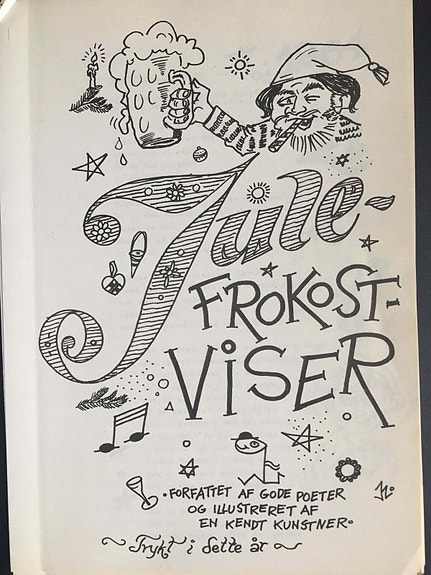 Jule-
FROKOST-
VISER
•FORFATTET AF GODE POETER
OG ILLUSTRERET AF
EN KENDT KUNSTNER•
~ Trykt i dette år ~